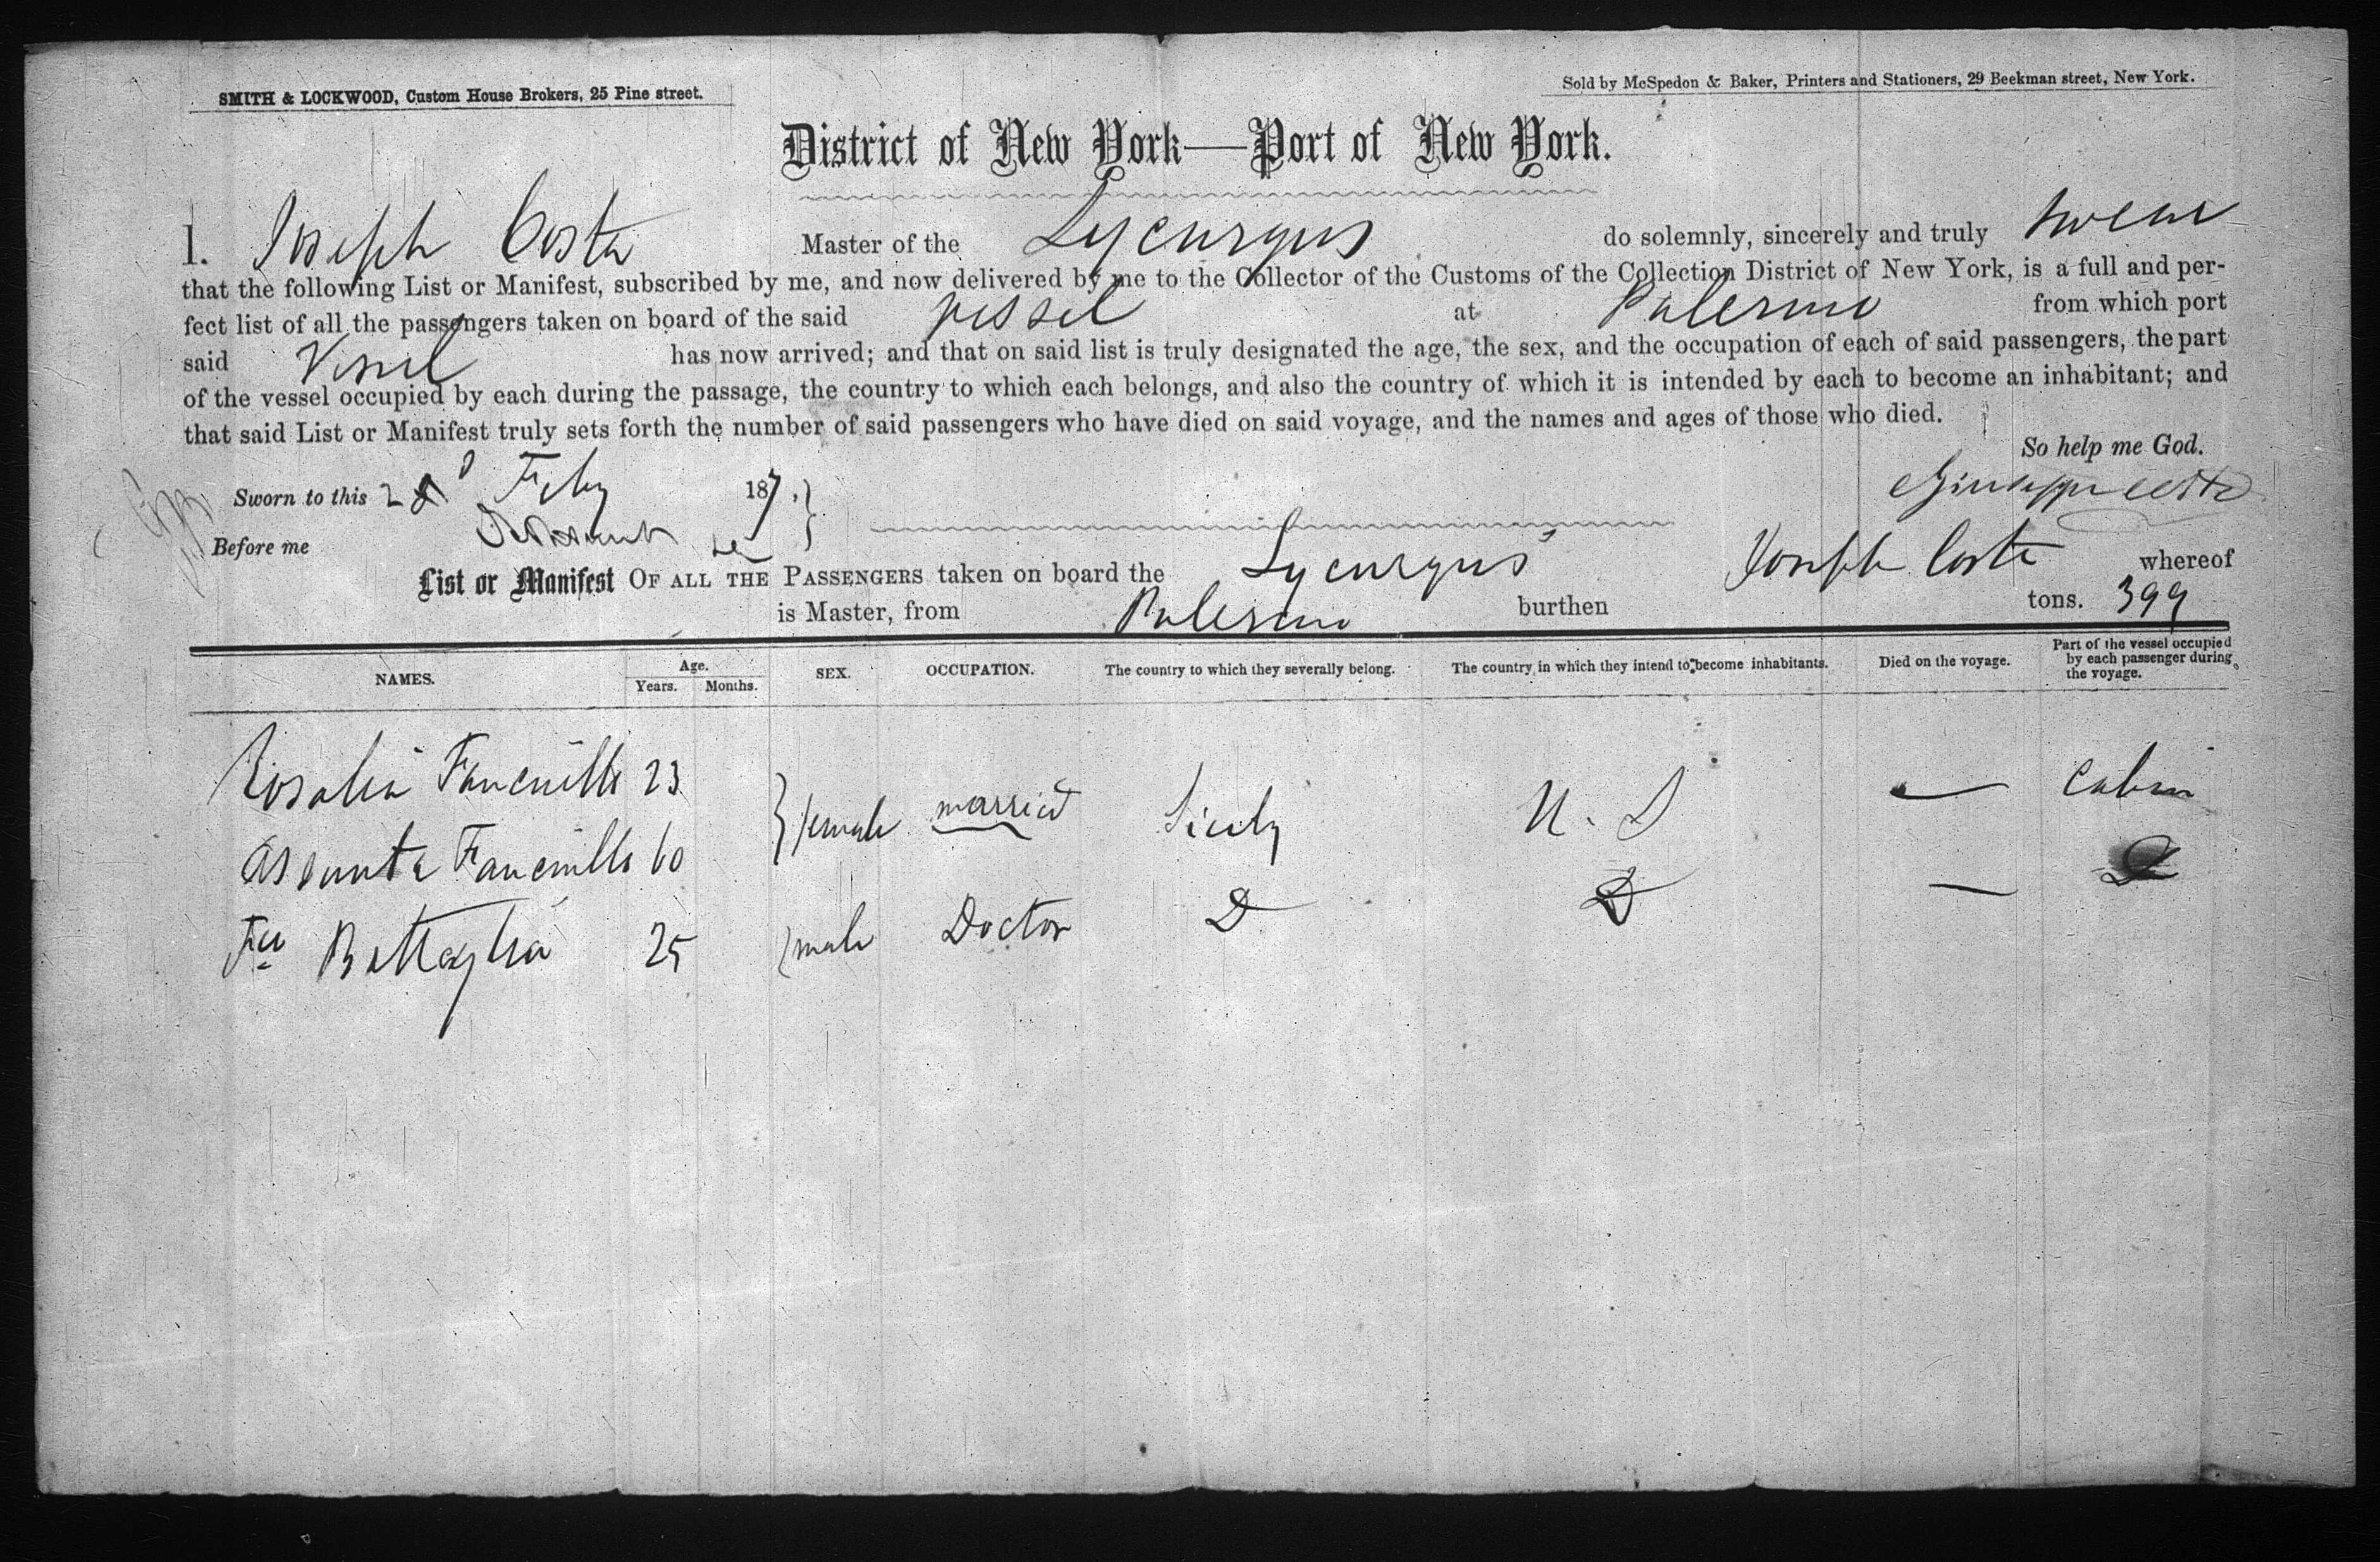 SMITH & LOCKWOOD, Custom House Brokers, 25 Pine street.
Sold by McSpedon & Baker, Printers and Stationers, 29 Beekman street, New York.
District of New York—Port of New York.
I. Joseph Costa Master of the Lycurgus do solemnly, sincerely and truly swear
that the following List or Manifest, subscribed by me, and now delivered by me to the Collector of the Customs of the Collection District of New York, is a full and per-
fect list of all the passengers taken on board of the said vessel at Palermo from which port
said Vessel has now arrived; and that on said list is truly designated the age, the sex, and the occupation of each of said passengers, the part
of the vessel occupied by each during the passage, the country to which each belongs, and also the country of which it is intended by each to become an inhabitant; and
that said List or Manifest truly sets forth the number of said passengers who have died on said voyage, and the names and ages of those who died.
So help me God.
Sworn to this Feby 187
Giuseppe Costa
Before me
List or Manifest OF ALL THE PASSENGERS taken on board the Lycurgus Joseph Costa whereof
is Master, from Palermo burthen tons. 399
NAMES. Age. Years. Months. SEX. OCCUPATION. The country to which they severally belong. The country in which they intend to become inhabitants. Died on the voyage. Part of the vessel occupied by each passenger during the voyage.
Rosalia 23 female married Sicily U. S — Cabin
Assunta 60
Battaglia 25 male Doctor D D — D